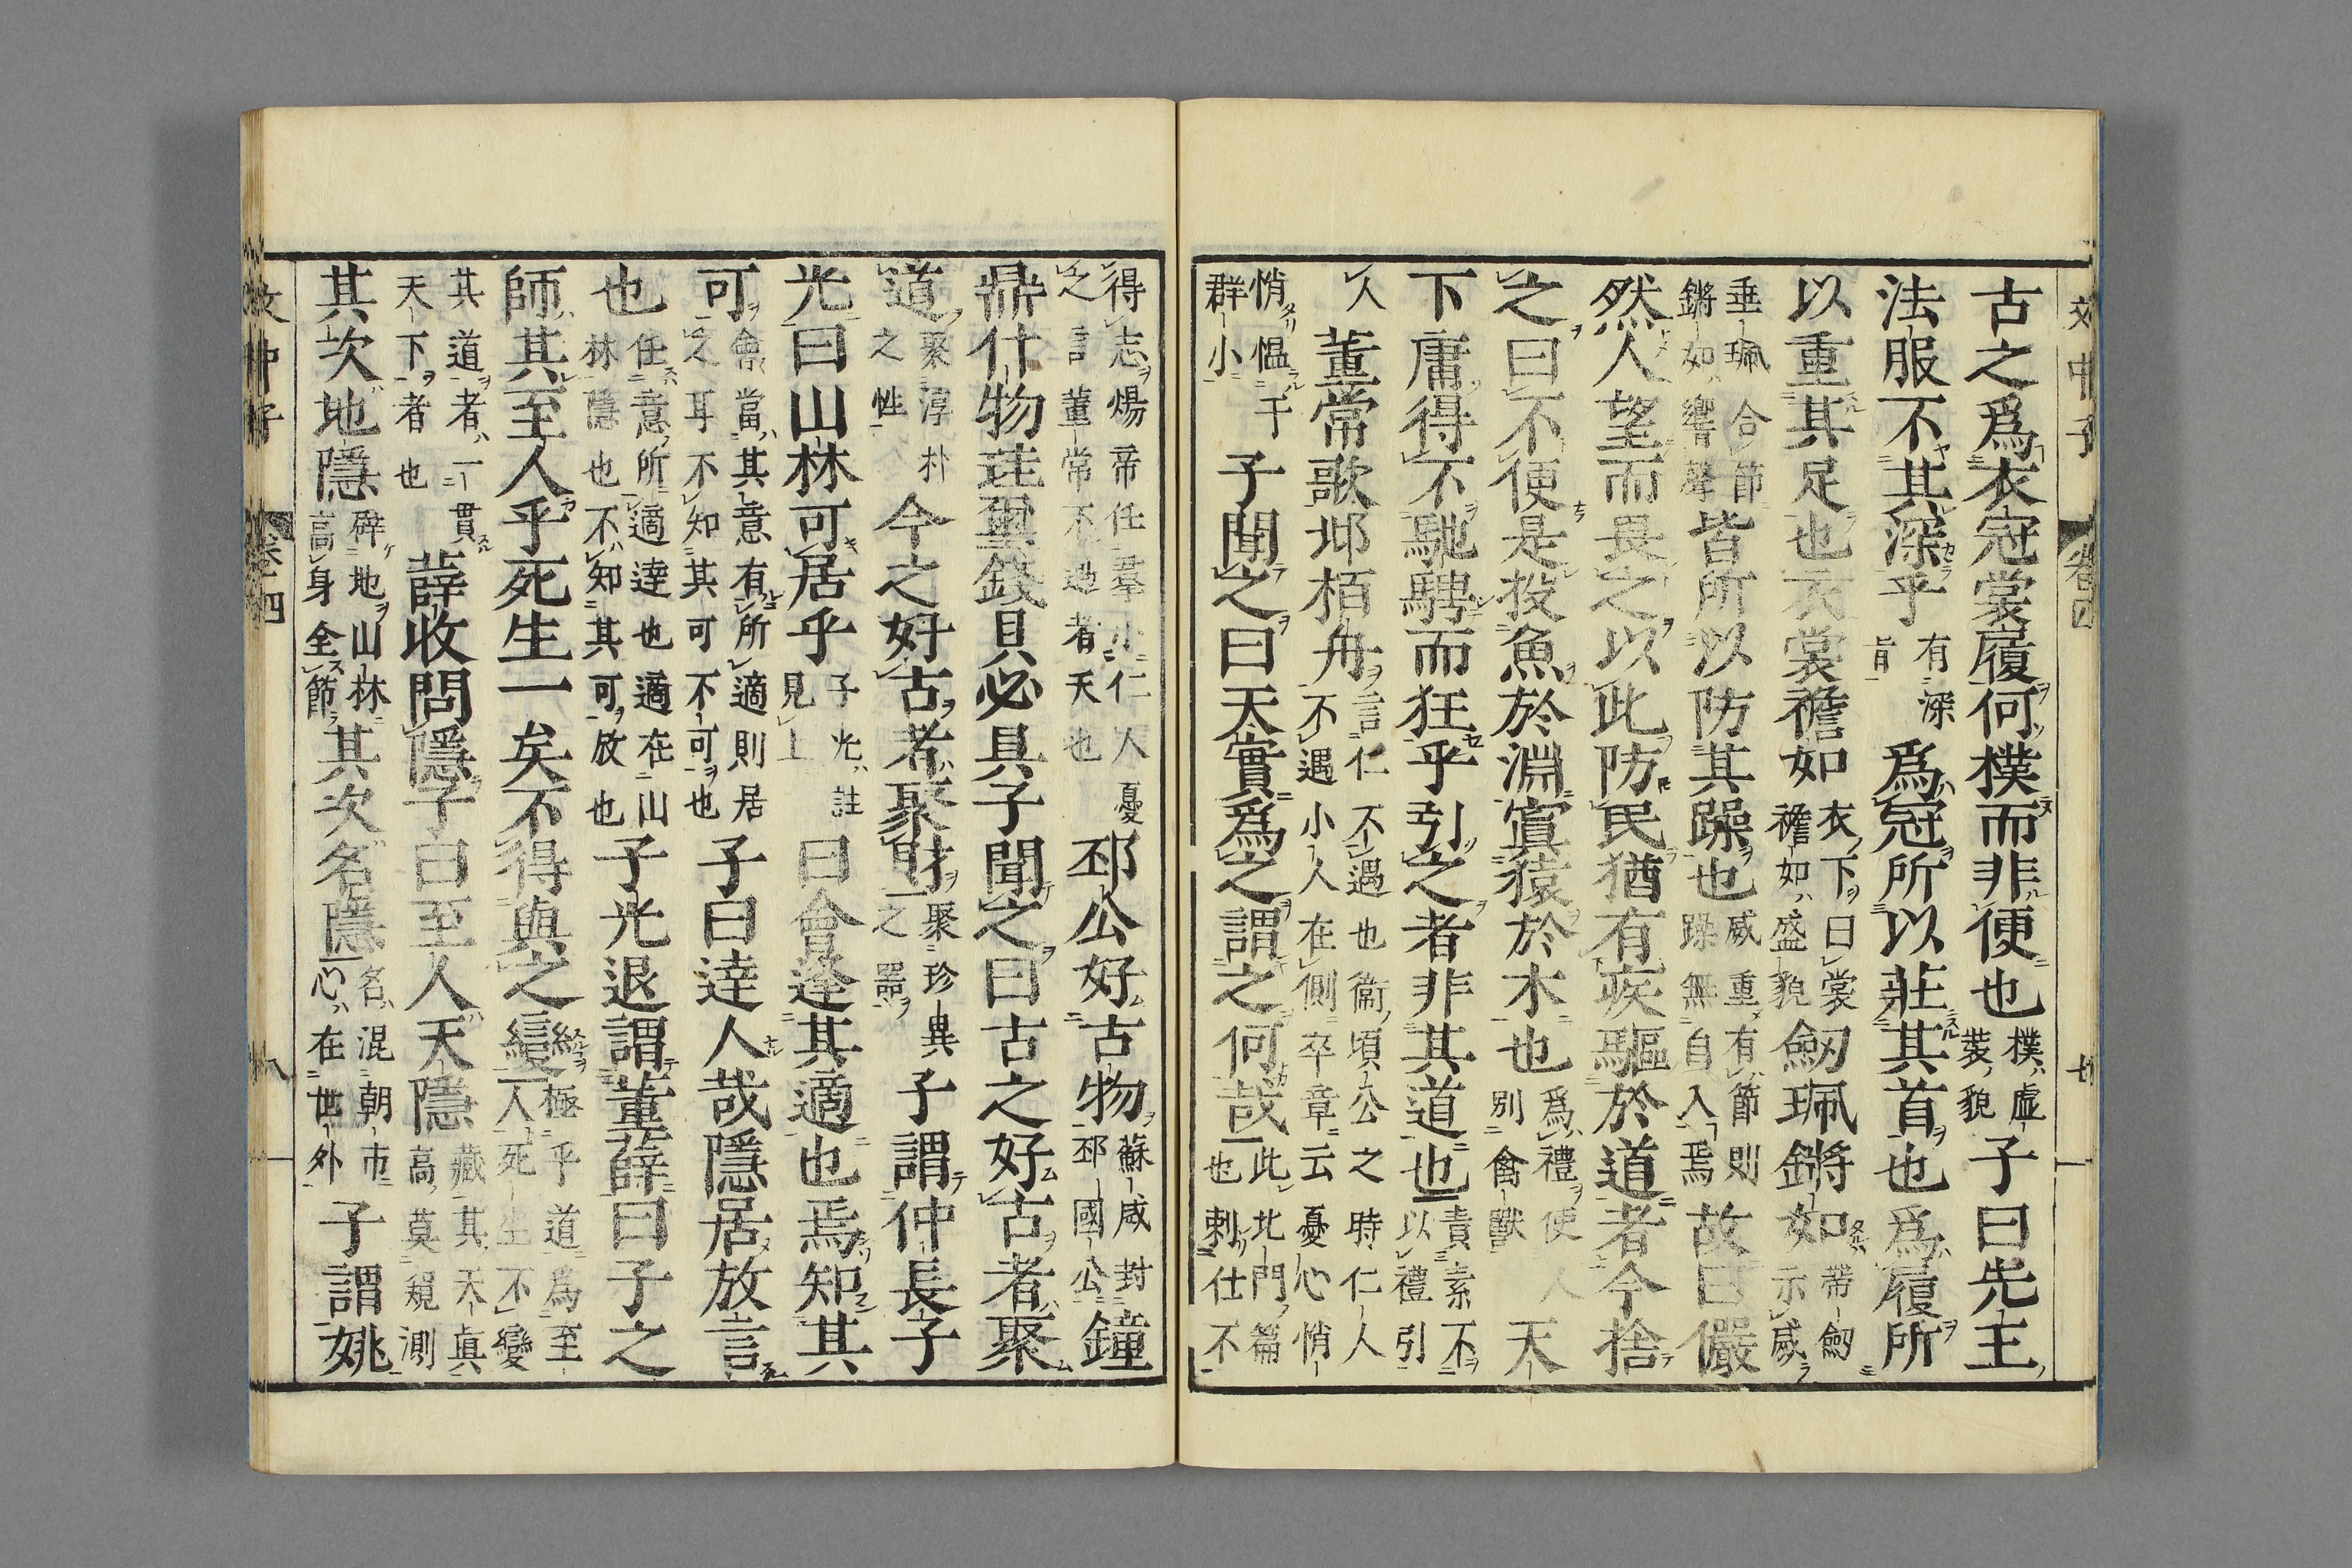 古之爲衣冠裳履何樸而非便也樸虛菱貌子曰先王
法服不其深乎有深旨爲冠所以莊其首也爲履所
以重其足也衣裳襜如衣下曰裳襜如盛貌劒珮鏘如帶劒示威
垂珮合節鏘如響聲皆所以防其躁也威重有節則躁無自入焉故曰儼
然人望而畏之以此防民猶有疾驅於道者今捨
之曰不便是投魚於淵寘猿於木也爲禮使人別禽獸天
下庸得不馳騁而狂乎引之者非其道也責素不以禮引
人董常歌邶栢舟言仁不遇也衞頃公之時仁人不遇小人在側卒章云憂心悄
悄慍于群小子聞之曰天實爲之謂之何哉此北門篇也刺仕不
得志煬帝任羣小仁人憂之言董常不遇者天也邳公好古物蘇威封邳國公鐘
鼎什物珪璽錢具必具子聞之曰古之好古者聚
道聚淳朴之性今之好古者聚財聚珍異之器子謂仲長子
光曰山林可居乎子光註見上曰會逢其適也焉知其
可會當其意有所適則居之耳不知其可不可也子曰達人哉隱居放言
也任意所適達也適在山林隱也不知其可放也子光退謂董薛曰子之
師其至人乎死生一矣不得與之變經極乎道爲至人死生不變
其道者一貫天下者也薛收問隱子曰至人天隱藏其天眞高莫窺測
其次地隱辟地山林高身全節其次名隱名混朝市心在世外子謂姚
文中子
卷四
七
文中子
卷四
八